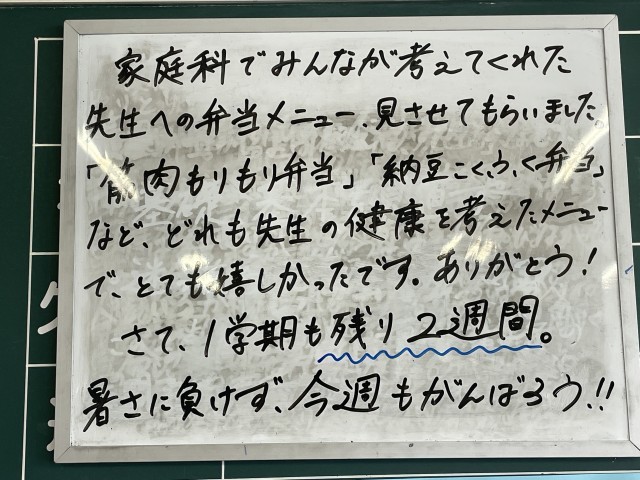 家庭科でみんなが考えてくれた
先生への弁当メニュー、見させてもらいました。
「筋肉もりもり弁当」「納豆こくうく弁当」
など、どれも先生の健康を考えたメニュー
で、とても嬉しかったです。ありがとう！
さて、1学期も残り2週間。
暑さに負けず、今週もがんばろう!!